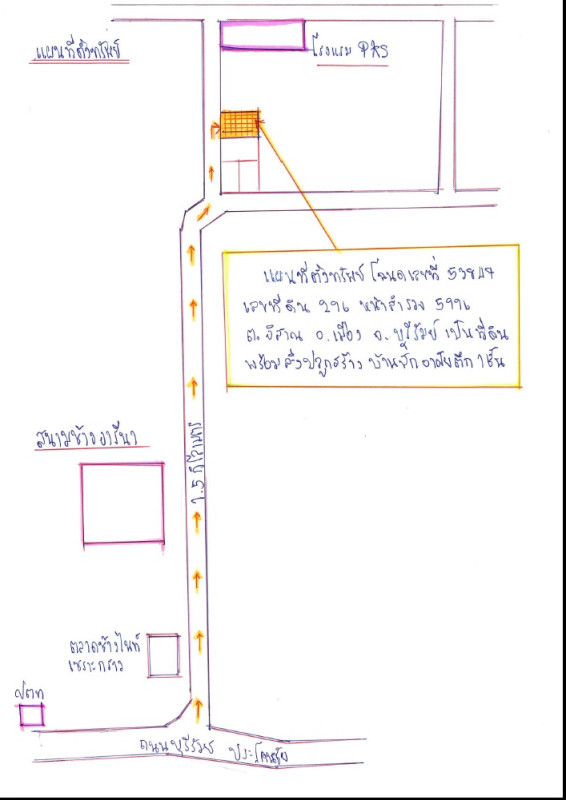 แผนที่ตัวทรัพย์
โรงแรม P&S
แผนที่ตัวทรัพย์ โฉนดเลขที่ 53847
เลขที่ดิน 296 หน้าสำรวจ 5996
ต.อิสาณ อ.เมือง จ.บุรีรัมย์ เป็นที่ดิน
พร้อมสิ่งปลูกสร้าง บ้านพักอาศัยตึก 1ชั้น
สนามช้างอารีนา
1.5 กิโลเมตร
ตลาดช้างไนท์
เซราะกราว
ปตท
ถนนบุรีรัมย์ ประโคนชัย